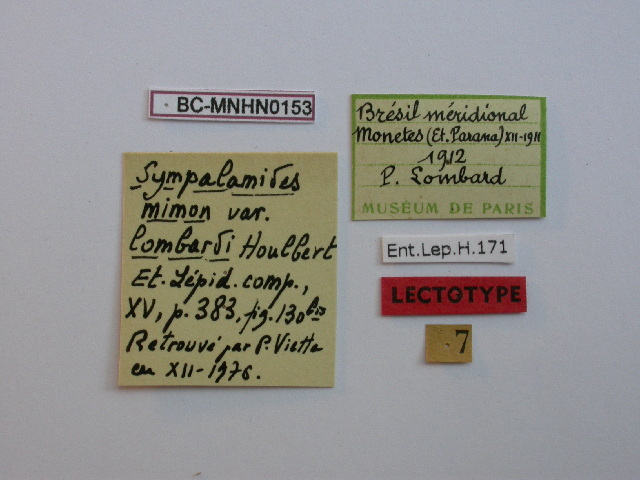 BC-MNHN0153
Sympalamides
mimon var.
lombardi Houlbert
Et. Lépid. comp.,
XV, p. 383, fig. 130 bis
Retrouvé par P. Viette
en XII-1976.
Brésil méridional
Monetes (Et. Parana) XII-1911
1912
P. Lombard
MUSÉUM DE PARIS
Ent.Lep.H.171
LECTOTYPE
7